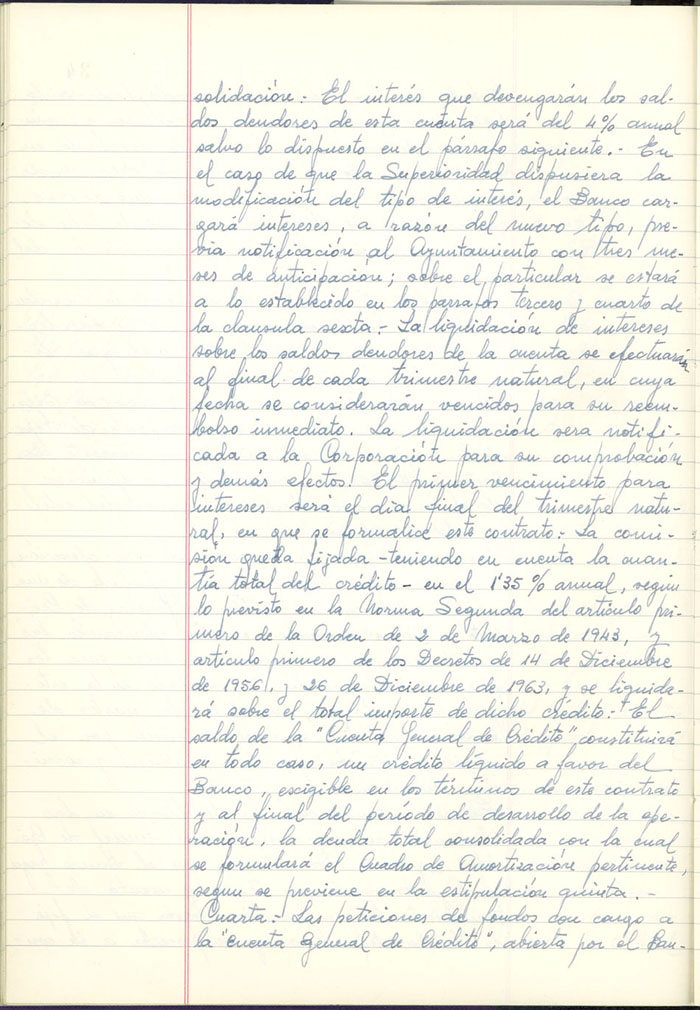 solidación:- El interés que devengarán los sal-
dos deudores de esta cuenta será del 4% anual
salvo lo dispuesto en el párrafo siguiente.- En
el caso de que la Superioridad dispusiera la
modificación del tipo de interés, el Banco car-
gará intereses, a razón del nuevo tipo, pre-
via notificación al Ayuntamiento con tres me-
ses de anticipación; sobre el particular se estará
a lo establecido en los párrafos tercero y cuarto de
la clausula sexta:- La liquidación de intereses
sobre los saldos deudores de la cuenta se efectuará
al final de cada trimestre natural, en cuya
fecha se considerarán vencidos para su reem-
bolso inmediato. La liquidación sera notifi-
cada a la Corporación para su comprobación
y demás efectos. El primer vencimiento para
intereses será el día final del trimestre natu-
ral, en que se formalice este contrato:- La comi-
sión queda fijada -teniendo en cuenta la cuan-
tía total del crédito- en el 1'35% anual, según
lo previsto en la Norma Segunda del artículo pri-
mero de la Orden de 2 de Marzo de 1943, y
artículo primero de los Decretos de 14 de Diciembre
de 1956, y 26 de Diciembre de 1963, y se liquida-
rá sobre el total importe de dicho crédito:- El
saldo de la "Cuenta General de Crédito" constituirá
en todo caso, un crédito líquido a favor del
Banco, escigible en los términos de este contrato
y al final del período de desarrollo de la ope-
ración, la deuda total consolidada con la cual
se formulará el Cuadro de Amortización pertinente,
segun se previene en la estipulación quinta.-
Cuarta:- Las peticiones de fondos con cargo a
la "cuenta General de Crédito", abierta por el Ban-